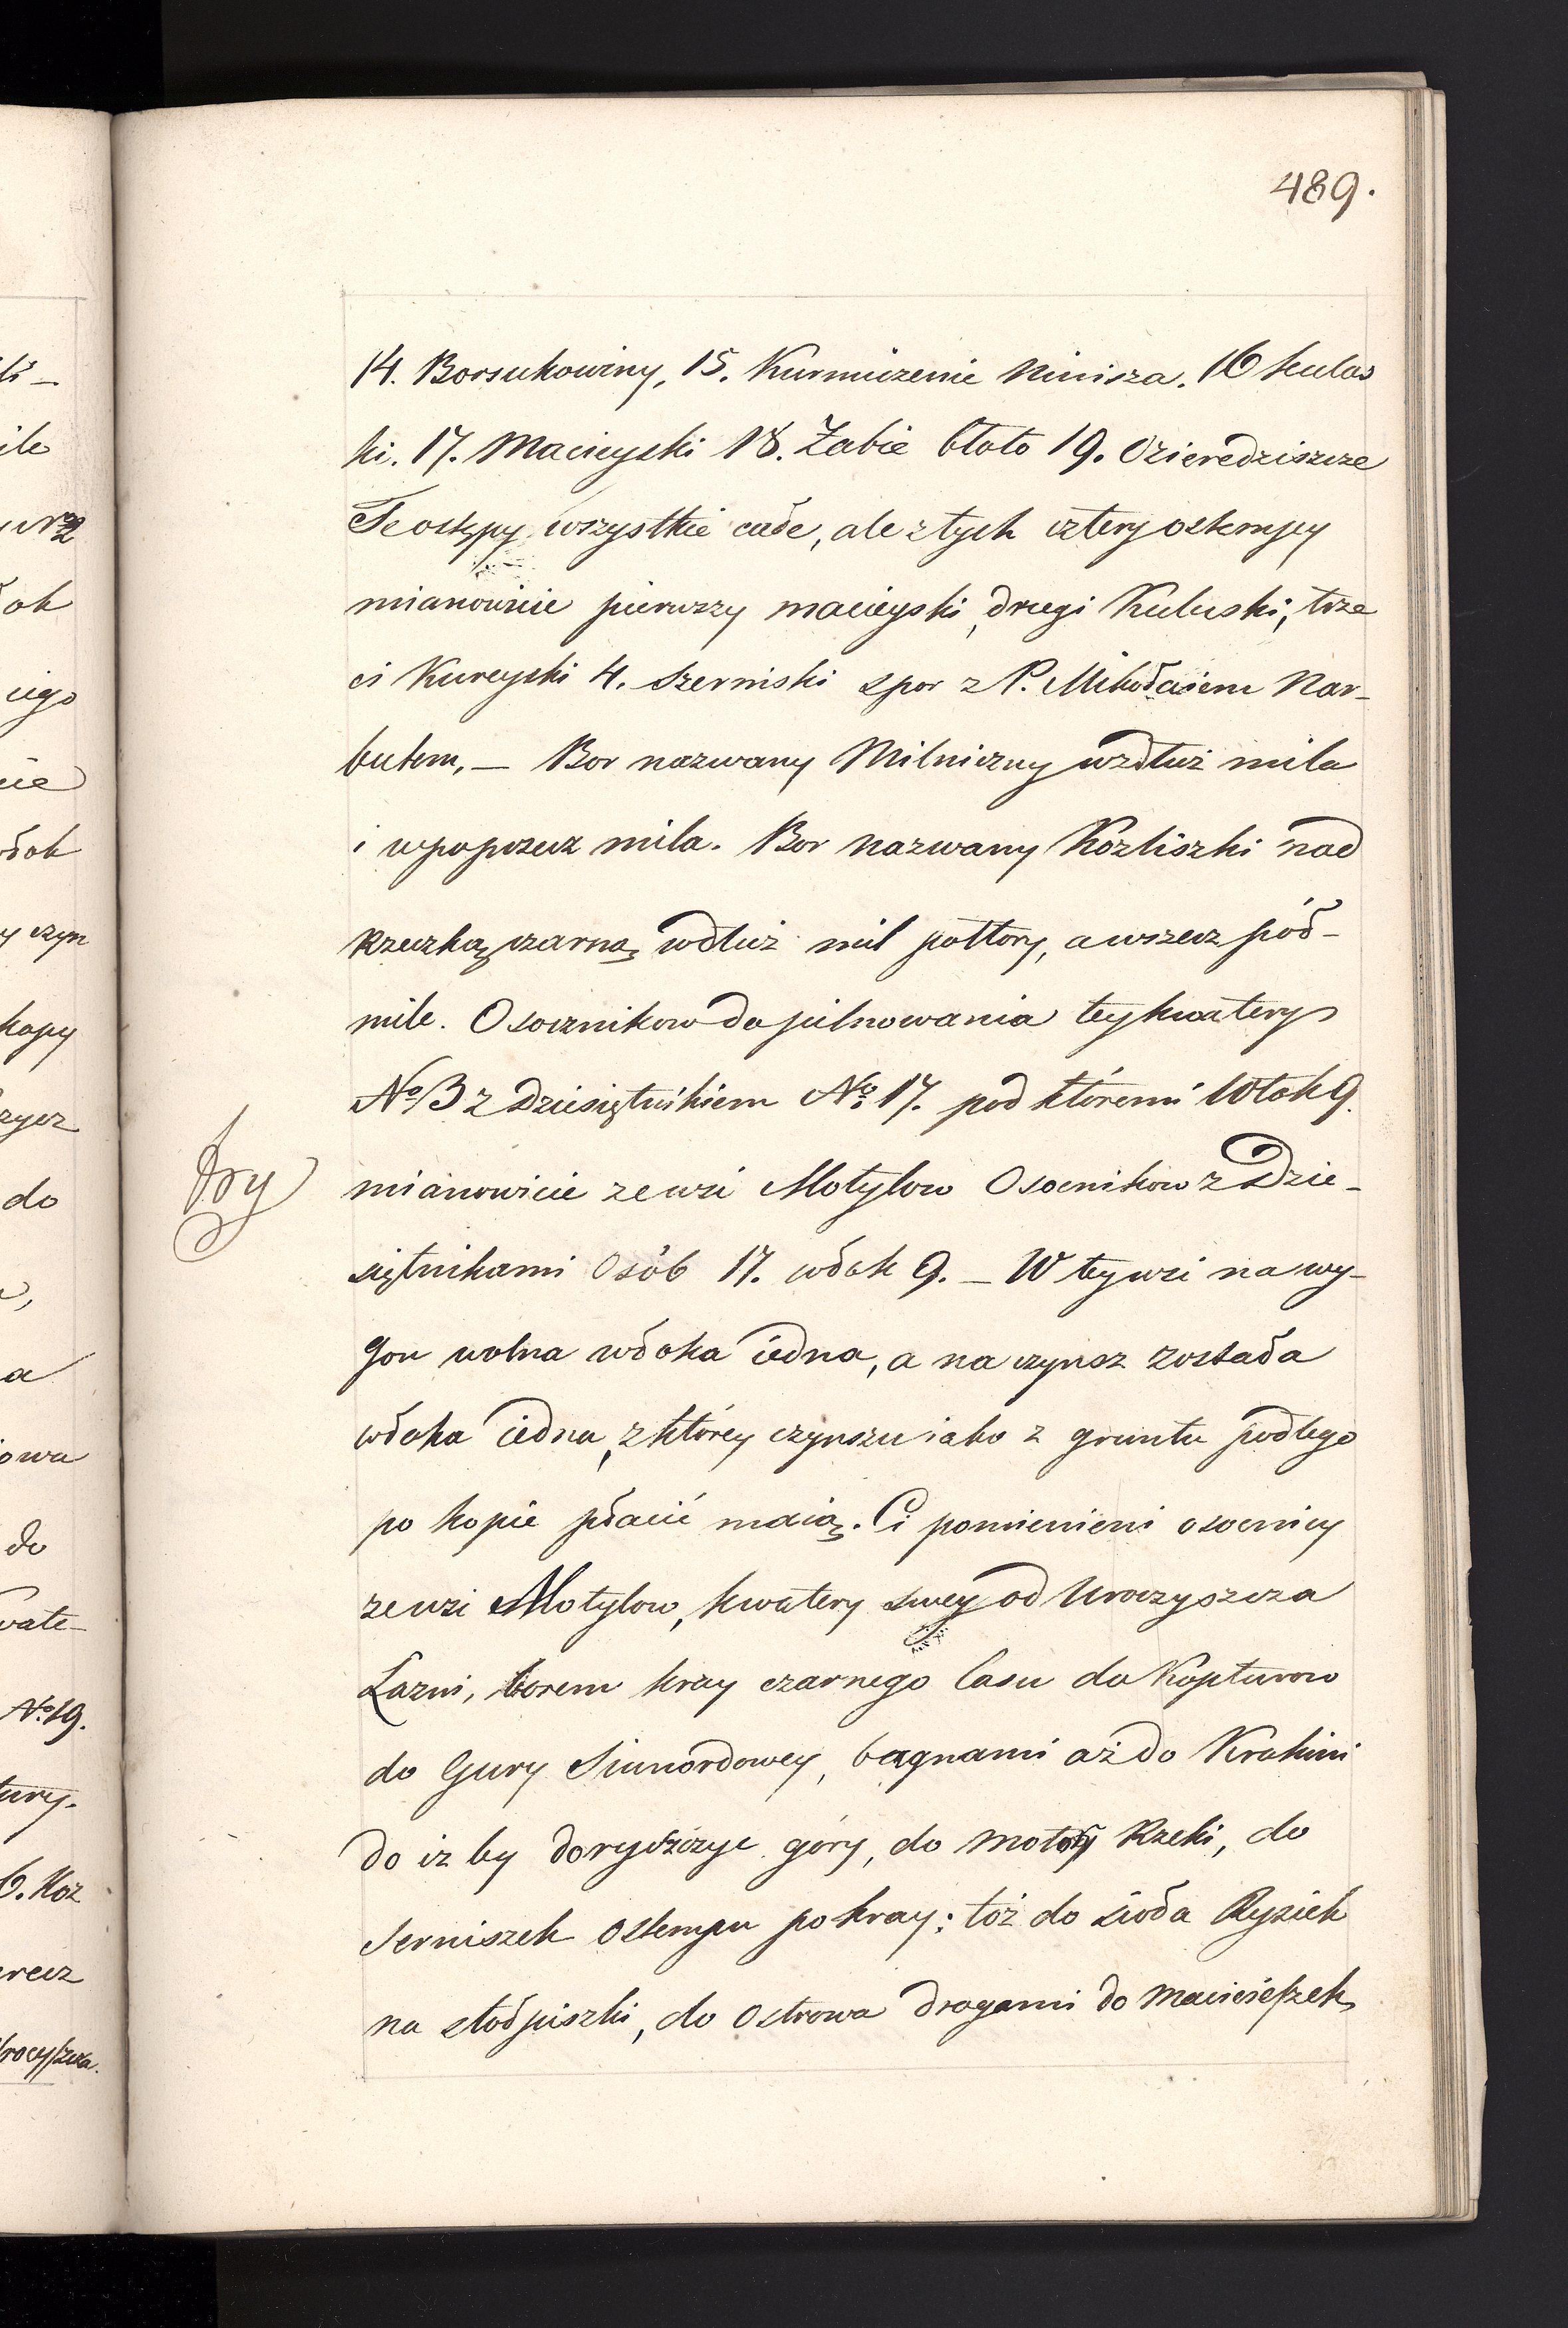 489.
14. Borsukowiny, 15. Kurmiczenie Ninisza. 16 kulas
ki. 17. Macieyski 18. Zabie błoto 19. Ozieredziszcze
Te ostępy wszystkie całe, ale z tych cztery ostempy
mianowicie pierwszy macieyski, drugi Kuluski, trze
ci Kureyski 4. Szerniski spor z P. Mikołaiem Nar-
butem, — Bor nazwany Milniczny wzdłuż mila
i wpoprzecz mila. Bor nazwany Kozliszki nad
Rzeczką czarną wdłuż mil pułtory, a wszerz pół-
mile. Osocznikow do pilnowania tey kwatery
No 3 z Dziesiętnikiem No 17. pod ktoremi Włok 9.
try
mianowicie ze wsi Motylow Osocnikow z Dzie-
siętnikami Osób 17. włok 9. — W tey wsi na wy-
gon wolna włoka iedna, a na czynsz została
włoka iedna, z którey czynszu iako z gruntu podłego
po kopie płacić maią. Ci pomienieni osocnicy
ze wsi Motylow, kwatery swey od Uroczyszcza
Łazni, borem kray czarnego lasu do Kopturow
do Gury Simordowey, bagnami aż do Krakini
do iz by do góry, do Rzeki, do
Serniszek Ostempu po kray; toż do sioła Rysiek
na słołpiszki, do Ostrowa drogami do